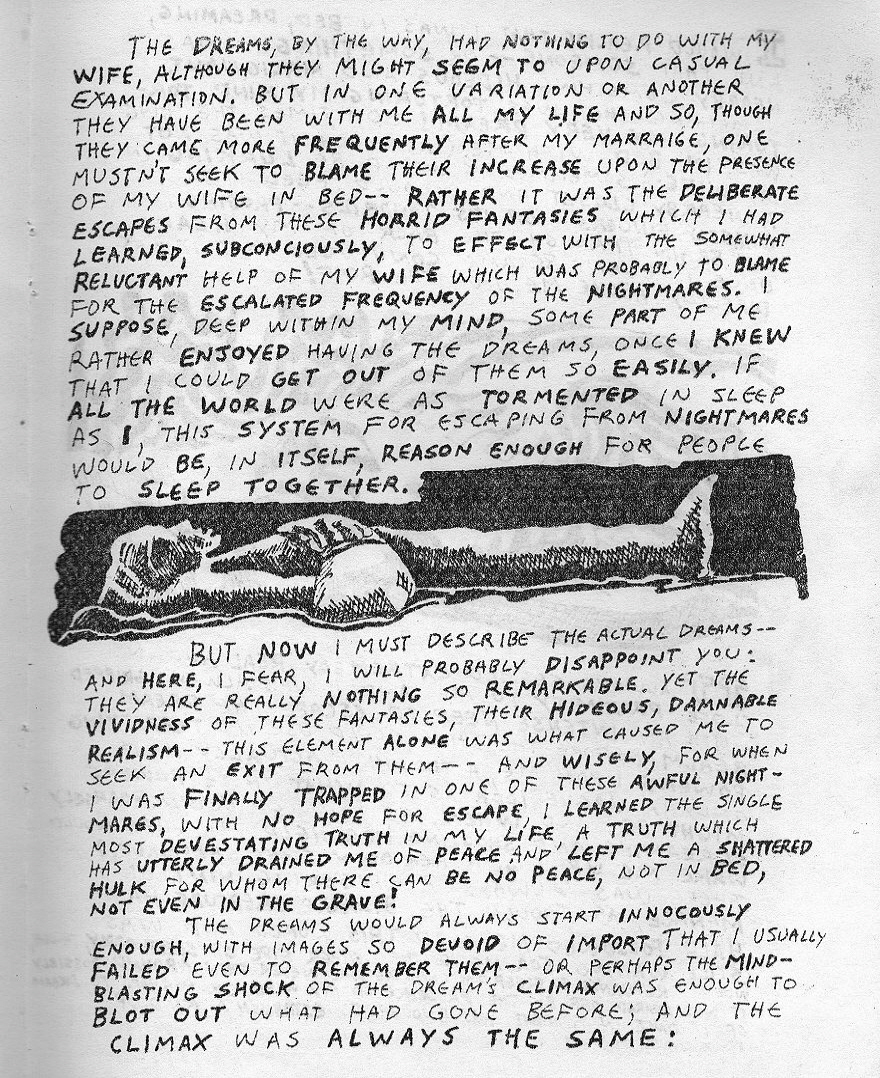 THE DREAMS, BY THE WAY, HAD NOTHING TO DO WITH MY
WIFE, ALTHOUGH THEY MIGHT SEEM TO UPON CASUAL
EXAMINATION. BUT IN ONE VARIATION OR ANOTHER
THEY HAVE BEEN WITH ME ALL MY LIFE AND SO, THOUGH
THEY CAME MORE FREQUENTLY AFTER MY MARRAIGE, ONE
MUSTN'T SEEK TO BLAME THEIR INCREASE UPON THE PRESENCE
OF MY WIFE IN BED-- RATHER IT WAS THE DELIBERATE
ESCAPES FROM THESE HORRID FANTASIES WHICH I HAD
LEARNED, SUBCONCIOUSLY, TO EFFECT WITH THE SOMEWHAT
RELUCTANT HELP OF MY WIFE WHICH WAS PROBABLY TO BLAME
FOR THE ESCALATED FREQUENCY OF THE NIGHTMARES. I
SUPPOSE, DEEP WITHIN MY MIND, SOME PART OF ME
RATHER ENJOYED HAVING THE DREAMS, ONCE I KNEW
THAT I COULD GET OUT OF THEM SO EASILY. IF
ALL THE WORLD WERE AS TORMENTED IN SLEEP
AS I, THIS SYSTEM FOR ESCAPING FROM NIGHTMARES
WOULD BE, IN ITSELF, REASON ENOUGH FOR PEOPLE
TO SLEEP TOGETHER.
BUT NOW I MUST DESCRIBE THE ACTUAL DREAMS--
AND HERE, I FEAR, I WILL PROBABLY DISAPPOINT YOU:
THEY ARE REALLY NOTHING SO REMARKABLE. YET THE
VIVIDNESS OF THESE FANTASIES, THEIR HIDEOUS, DAMNABLE
REALISM-- THIS ELEMENT ALONE WAS WHAT CAUSED ME TO
SEEK AN EXIT FROM THEM-- AND WISELY, FOR WHEN
I WAS FINALLY TRAPPED IN ONE OF THESE AWFUL NIGHT-
MARES, WITH NO HOPE FOR ESCAPE, I LEARNED THE SINGLE
MOST DEVESTATING TRUTH IN MY LIFE, A TRUTH WHICH
HAS UTTERLY DRAINED ME OF PEACE AND LEFT ME A SHATTERED
HULK FOR WHOM THERE CAN BE NO PEACE, NOT IN BED,
NOT EVEN IN THE GRAVE!
THE DREAMS WOULD ALWAYS START INNOCOUSLY
ENOUGH, WITH IMAGES SO DEVOID OF IMPORT THAT I USUALLY
FAILED EVEN TO REMEMBER THEM-- OR PERHAPS THE MIND-
BLASTING SHOCK OF THE DREAM'S CLIMAX WAS ENOUGH TO
BLOT OUT WHAT HAD GONE BEFORE; AND THE
CLIMAX WAS ALWAYS THE SAME: